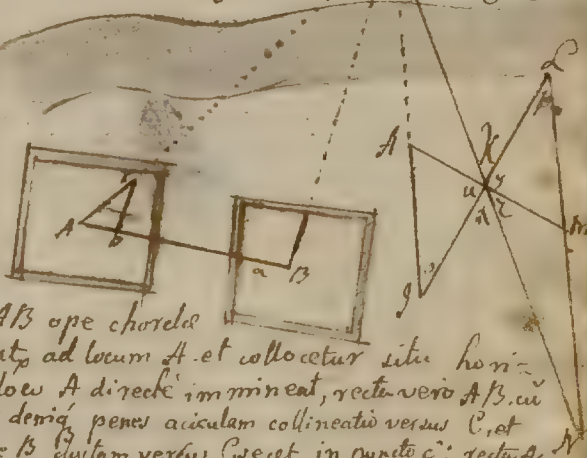 L
A
X
u
y
z
x
m
I
o
N
c
A
b
a
B
AB ope chordæ
ad locum A. et collocetur situ hori=
A directè immineat, recta vero AB. cū
deniq; penes aciculam collineatio versus C, et
B versus C in puncto c: recta